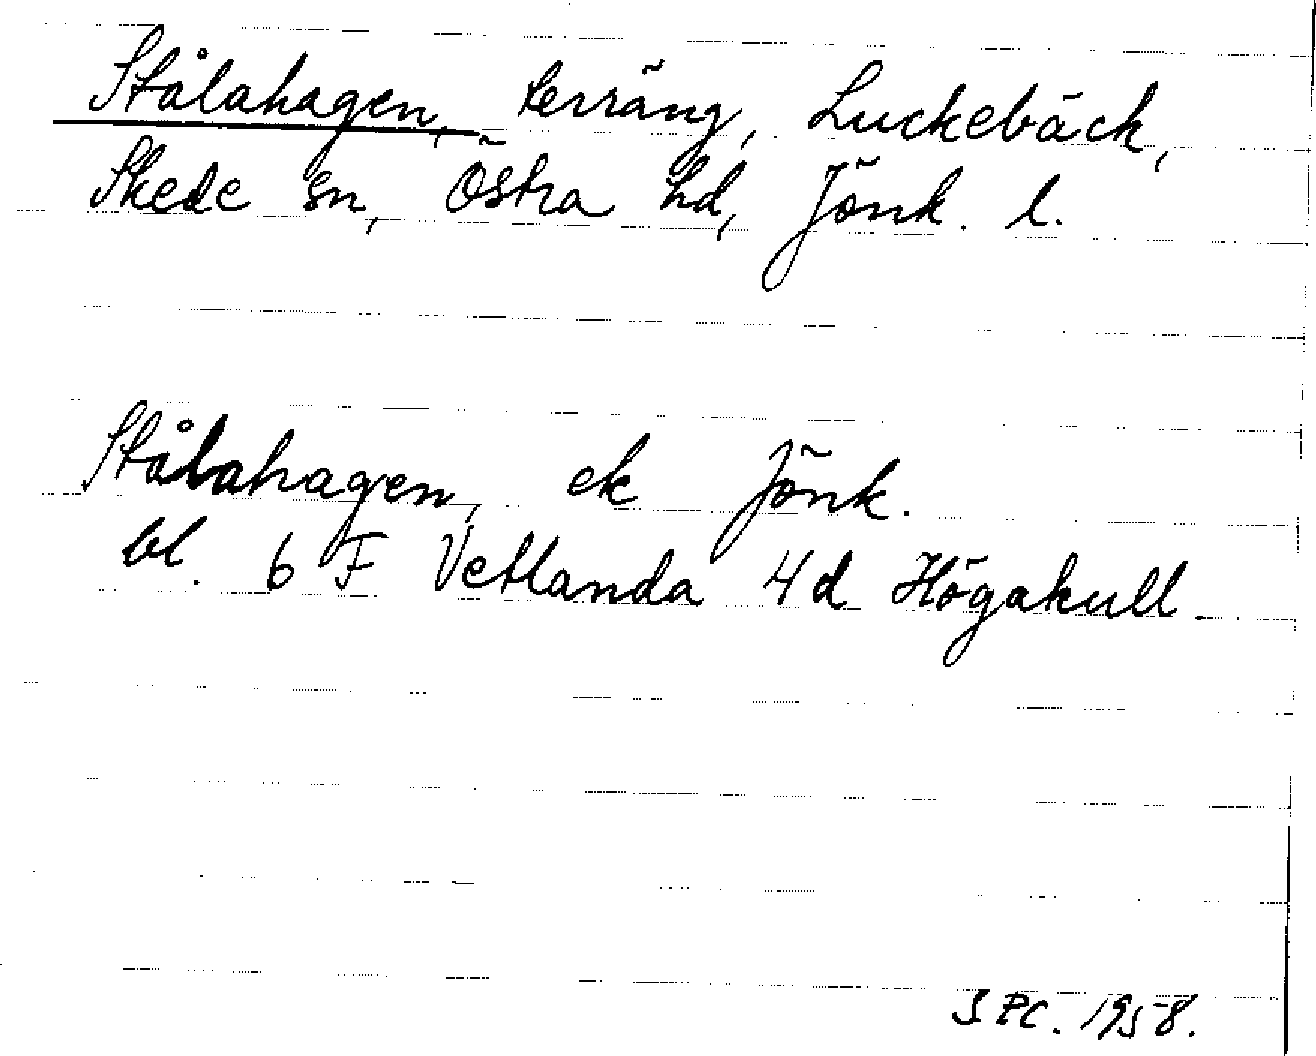 Stålahagen, terräng, Luckebäck,
Skede sn, Östra hd, Jönk. l.
Stålahagen, ek Jönk.
bl. 6 F Vetlanda 4d Högakull
S.P.C. 1958.